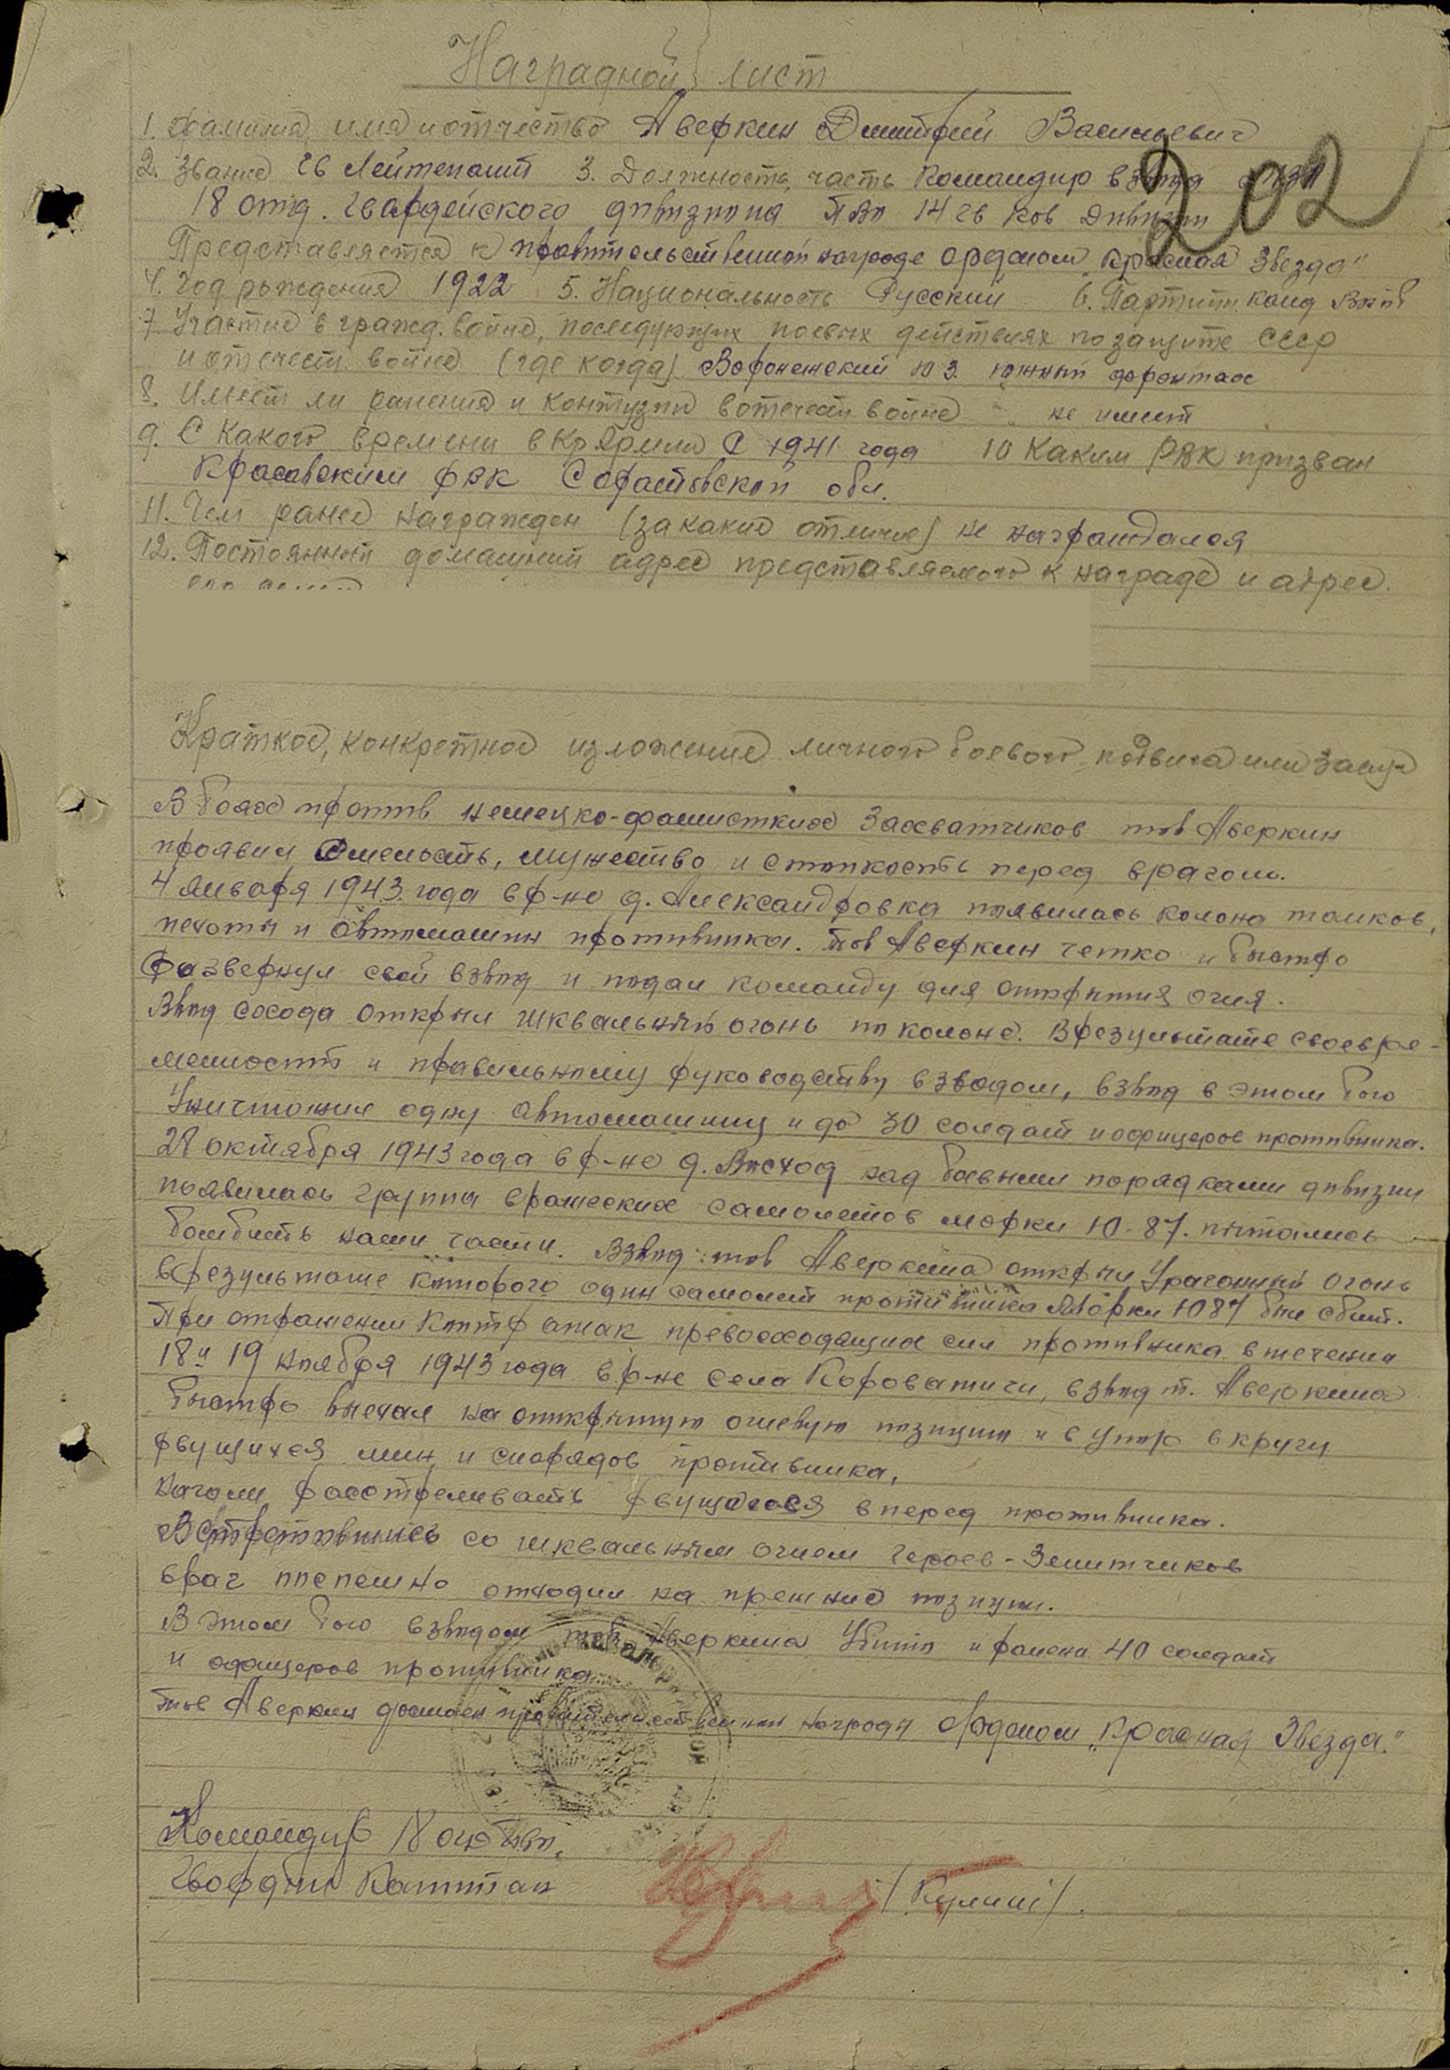 Наградной лист
202
1. Фамилия, имя и отчество Аверкин Дмитрий Васильевич
2. Звание гв Лейтенант 3. Должность, часть Командир взвода
18 отд. Гвардейского дивизиона ПВО 14 гв Кав Дивизии
Представляется к правительственной награде орденом „Красная Звезда"
4. Год рождения 1922 5. Национальность Русский 6. Партийн. канд ВКПб
7 Участие в гражд. войне, последующих боевых действиях по защите СССР
и отечест. войне (где когда) Воронежский Ю З. южный фронтах
8. Имеет ли ранения и контузии в отечест войне не имеет
9. С какого времени в Кр Армии С 1941 года 10 Каким РВК призван
РВК Саратовской обл.
11. Чем ранее награжден (за какие отличие) не награждался
12. Постоянный домашний адрес представляемого к награде и адрес.
Краткое, конкретное изложение личного боевого подвига или заслуг
В боях против немецко-фашистких захватчиков тов Аверкин
проявил смелость, мужество и стойкость перед врагом.
4 Января 1943 года в р-не д. Александровка появилась колона танков,
пехоты и автомашин противника. Тов Аверкин четко и быстро
развернул свой взвод и подал команду для открытия огня.
Взвод сохода открыл шквальный огонь по колоне. В результате своевре-
менности и правильному руководству взводом, взвод в этом бою
Уничтожил одну автомашину и до 30 солдат и офицеров противника.
28 октября 1943 года в р-не д. Восход над боевыми порядками дивизии
появилась группа вражеских самолетов марки Ю-87. пытались
бомбить наши части. Взвод тов Аверкина открыл Ураганный огонь
в результате которого один самолет противника Марки Ю87 был сбит.
При отражении контр атак превосходящих сил противника в течении
18 и 19 ноября 1943 года в р-не села Короватичи, взвод т. Аверкина
быстро выехал на открытую огневую позицию и в упор в кругу
рвущихся мин и снарядов противника,
начали расстреливать рвущегося вперед противника.
Встретившись со шквальным огнем героев-Зенитчиков
враг поспешно отходил на прежние позиции.
В этом бою взводом тов Аверкина Убито и ранено 40 солдат
и офицеров противника.
Тов Аверкин достоен правительственной награды Орденом „Красная Звезда."
Командир 18
Гвардии Капитан